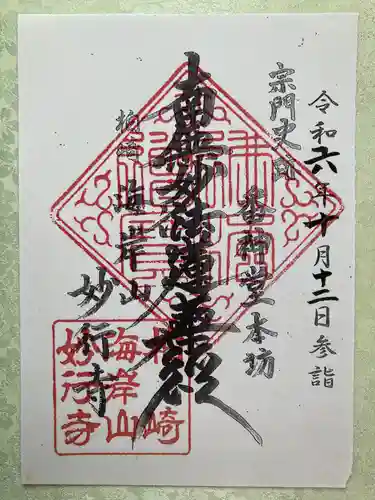 令和六年十月十二日参詣
宗門史跡
番神堂本坊
南無妙法蓮華経
柏崎
海岸山
妙行寺
柏崎
海岸山
妙行寺